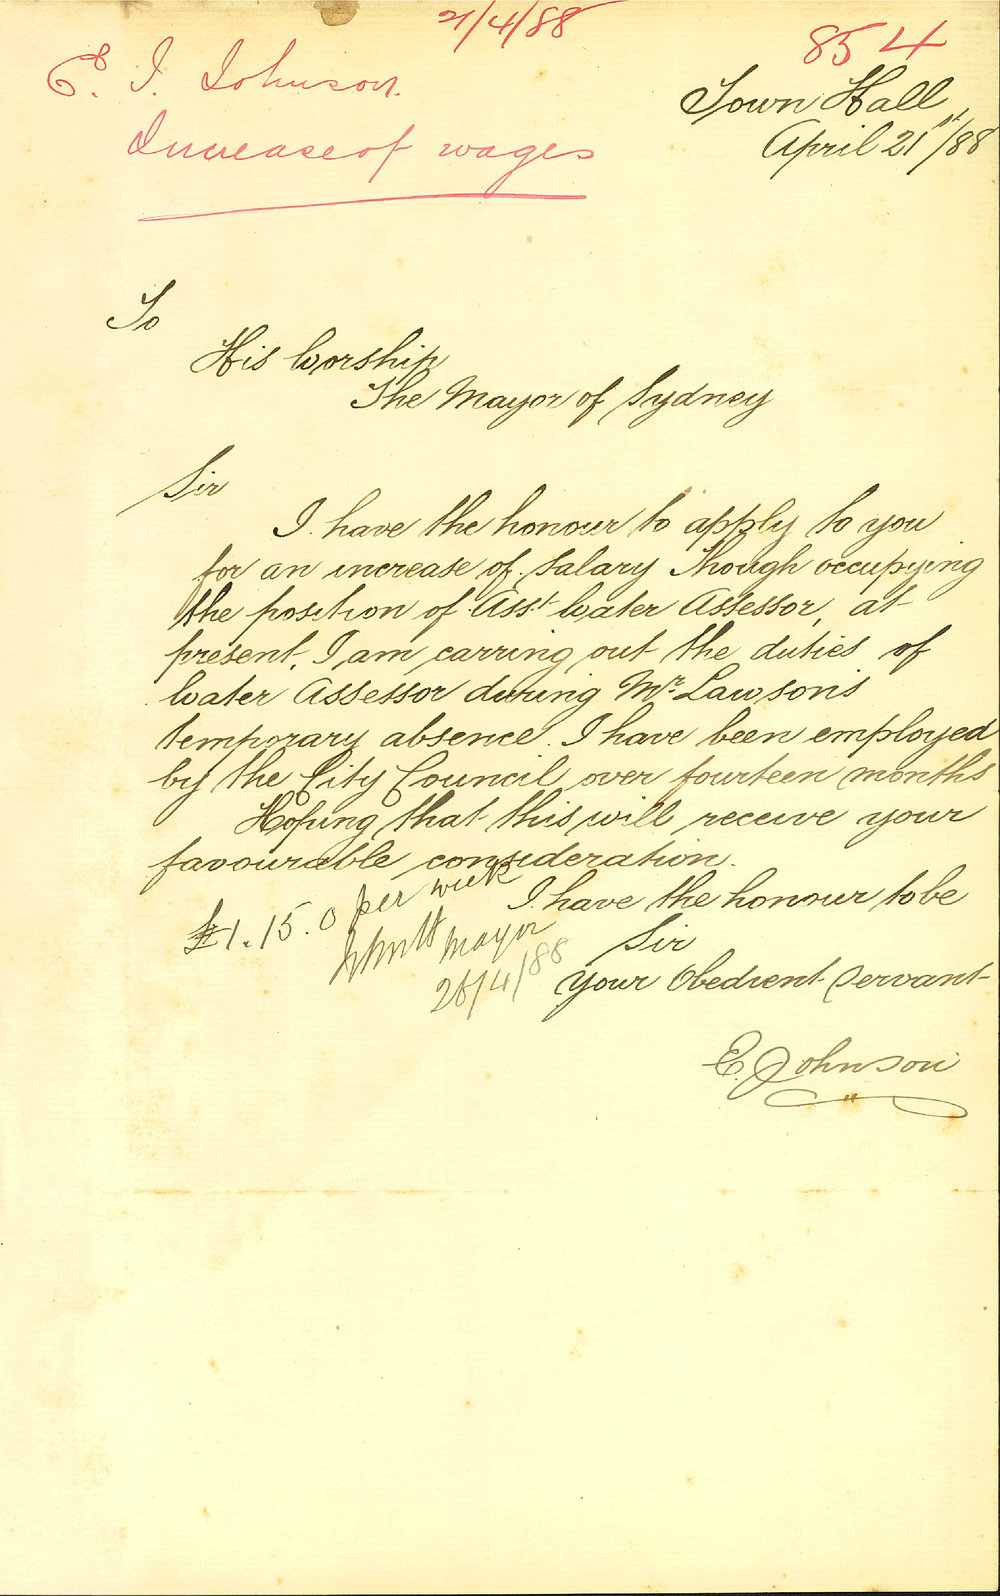 21/4/88
854
E. I. Johnson.
Increase of wages
Town Hall,
April 21st/88
To
His Worship
The Mayor of Sydney
Sir
I have the honour to apply to you
for an increase of salary Though occupying
the position of Asst Water Assessor, at
present, I am carring out the duties of
Water Assessor during Mr. Lawson's
temporary absence. I have been employed
by the City Council over fourteen months
Hoping that this will receive your
favourable consideration.
I have the honour to be
Sir
Your Obedient Servant
E. Johnson
£1.15.0 per week
Mayor
26/4/88